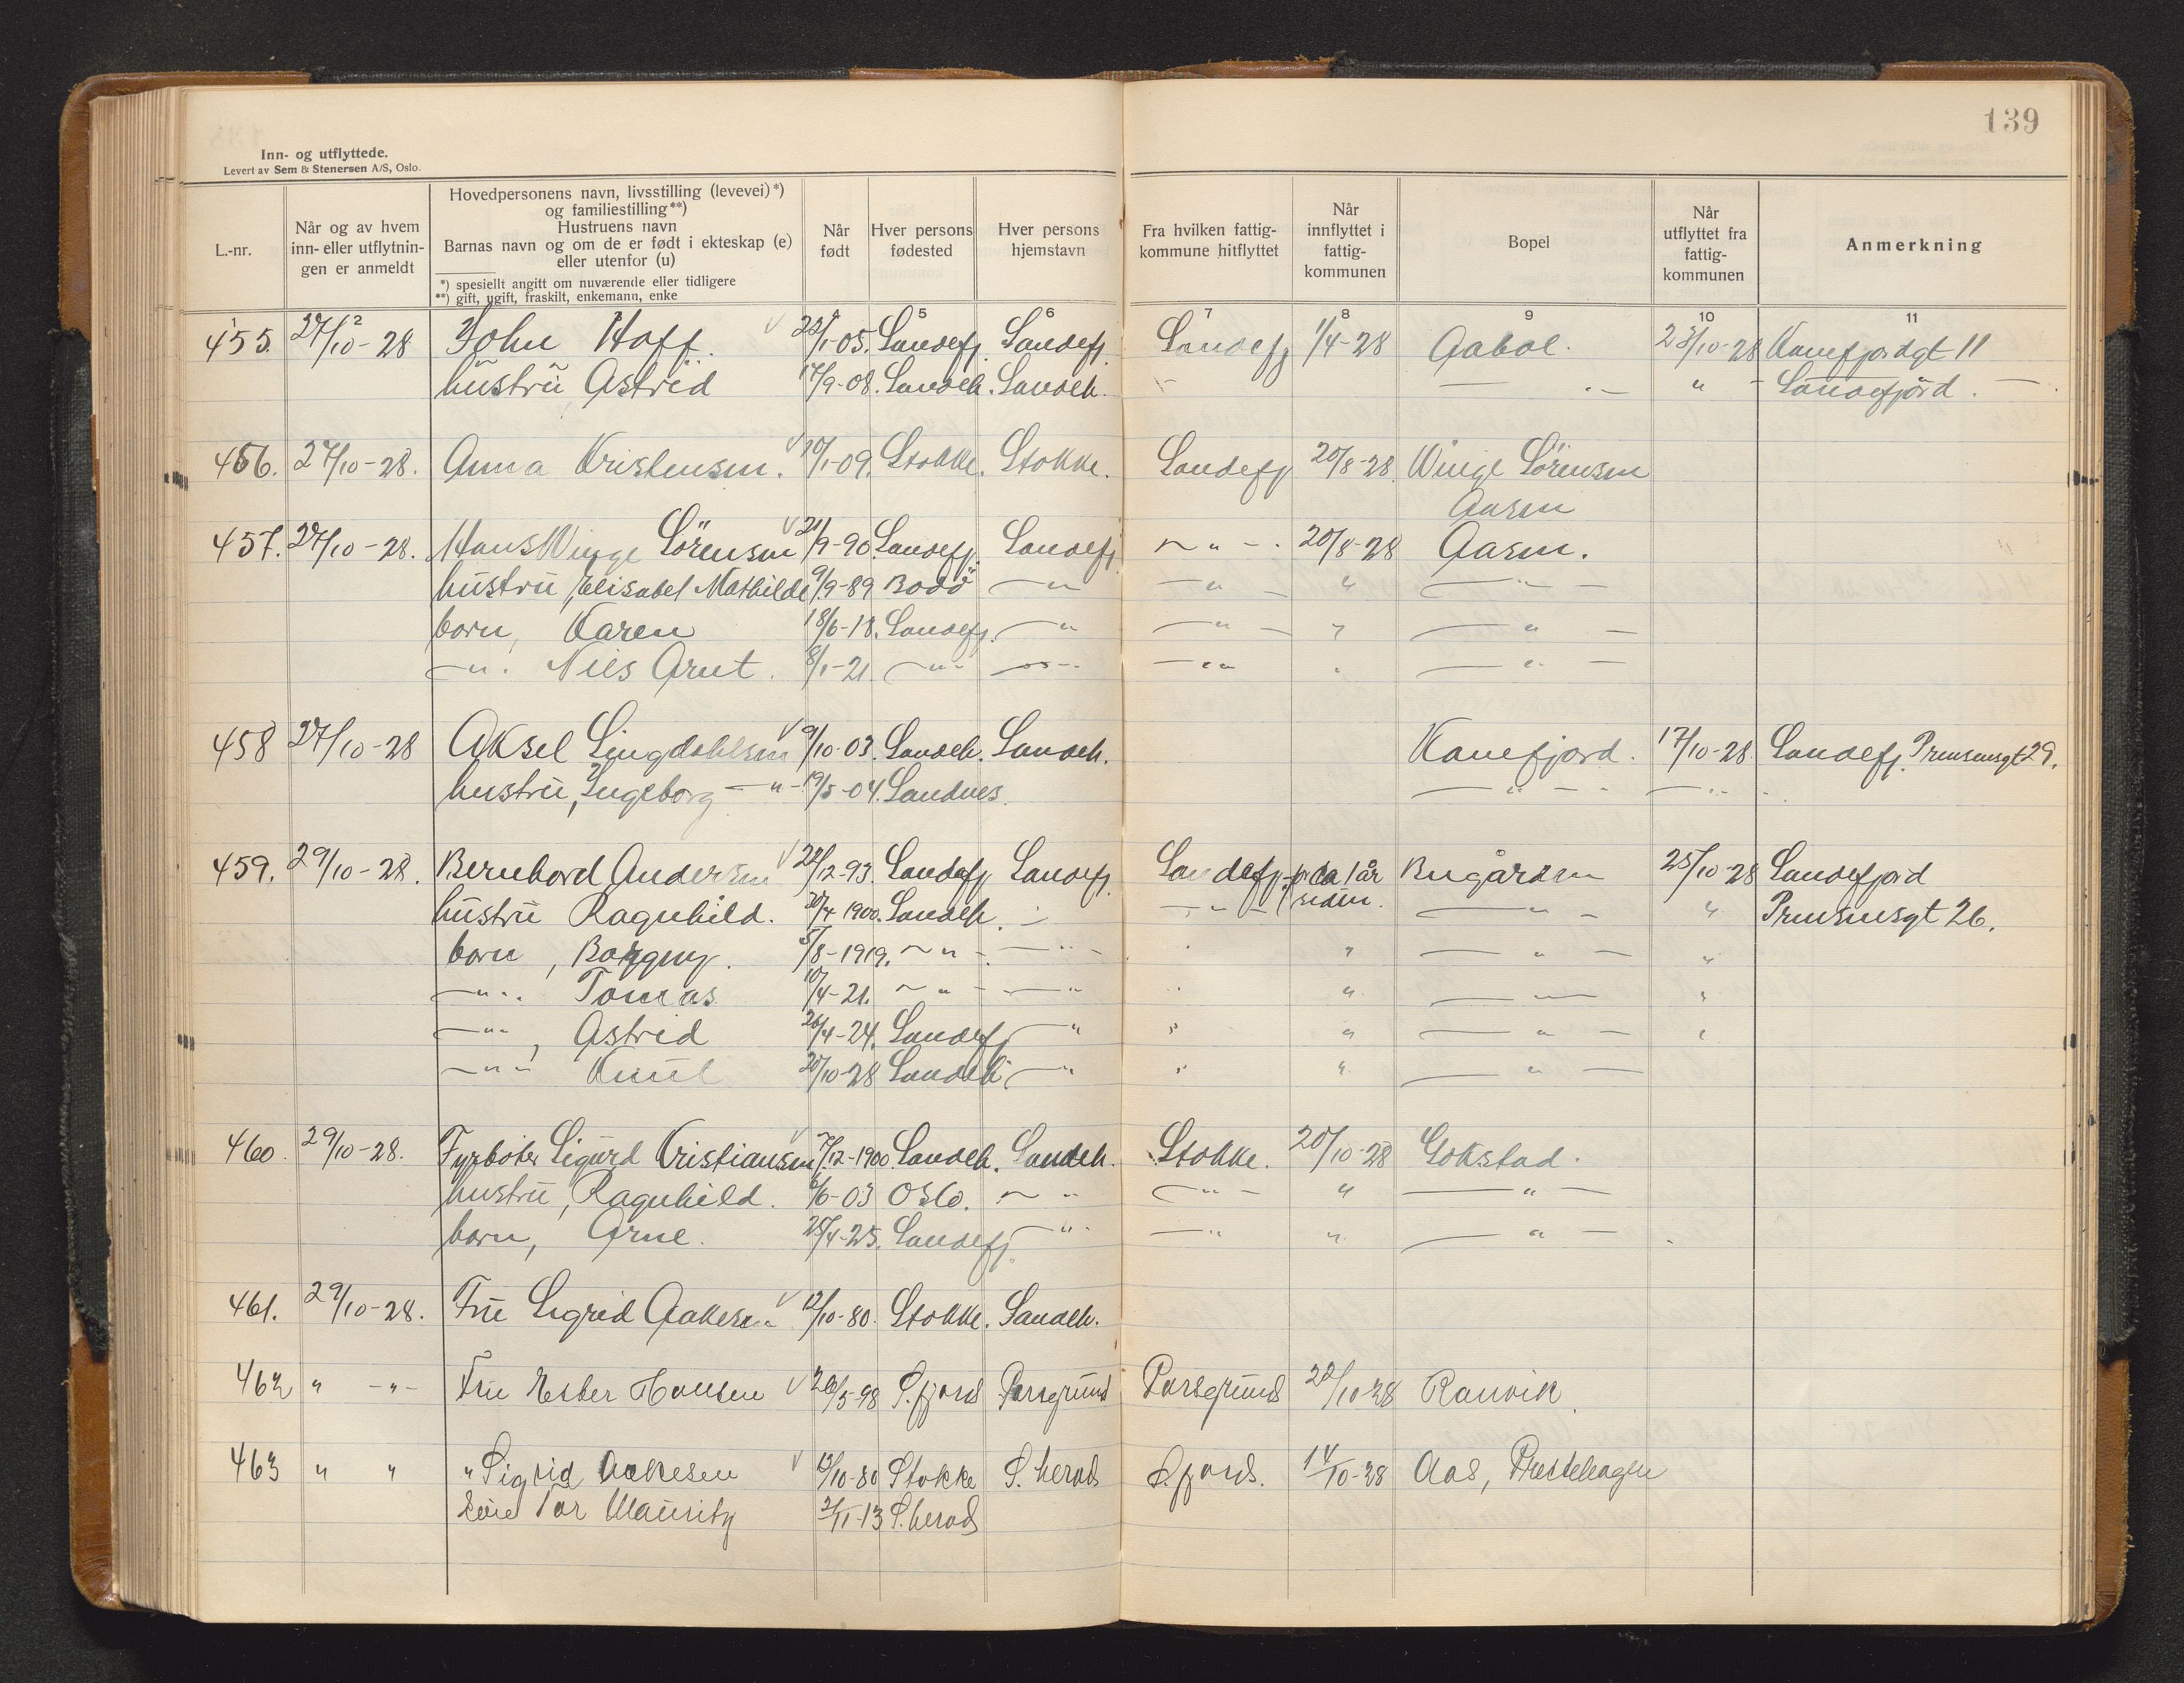 139
Inn- og utflyttede.
Levert av Sem & Stenersen A/S, Oslo.
L.-nr.
Når og av hvem inn- eller utflytnin- gen er anmeldt
Hovedpersonens navn, livsstilling (levevei)*) og familiestilling**) Hustruens navn Barnas navn og om de er født i ekteskap (e) eller utenfor (u)
*) spesiellt angitt om nuværende eller tidligere
**) gift, ugift, fraskilt, enkemann, enke
Når født
Hver persons fødested
Hver persons hjemstavn
Fra hvilken fattig- kommune hitflyttet
Når innflyttet i fattig- kommunen
Bopel
Når utflyttet fra fattig- kommunen
Anmerkning
1 2 5 6 7 8 9 10 11
455. 27/10-28 John Hoff. 22/1-05. Sandefj. Sandefj. Sandefj 1/4-28 Aabol. 23/10-28 Kamefjordgt 11
hustru Astrid 17/9-08. Sandeh. Sandeh. " Sandefjord.
456. 27/10-28. Anna Kristensen. 10/1-09. Stokke. Stokke. Sandefj 20/8-28. Winge Sörensen
Aasen
457. 27/10-28. Hans Winge Sörensen 21/9-90. Sandefj. Sandefj. — " — 20/8-28 Aasen.
hustru, Elisabet Mathilde 9/9-89 Bodö — " — " — " — " —
born, Karen 18/6-18. Sandefj. — " — " — " — " —
— " — Nils Arnt. 8/1-21. — " — — " — — " — " — " —
458 27/10-28 Aksel Lingdahlsen 9/10-03. Sandeh. Sandeh. Kamefjord. 17/10-28. Sandefj. Prinsensgt 29.
hustru, Ingeborg — " — 19/5-04. Sandnes. — " — — " —
459. 29/10-28. Bernhard Andersen 22/12-93. Sandefj Sandefj. Sandefj. for ca 1 år Bugården 25/10-28 Sandefjord
hustru Ragnhild. 20/4-1900. Sandeh. — " — siden. — " — " Prinsensgt 26.
born, Borgny. 5/8-1919. — " — — " — " " — " — "
— " — Tomas 10/4-21. — " — — " — " " — " — "
— " —, Astrid 26/4-24. Sandefj — " " " — " — "
— " — Knut 20/10-28 Sandeh — " " " — " —
460. 29/10-28. Fyrböter Sigurd Kristiansen 7/12-1900. Sandeh. Sandeh. Stokke. 20/10-28 Gokstad.
hustru, Ragnhild. 6/6-03 Oslo. — " — " — " — " —
born, Arne. 25/4-25. Sandefj. — " — " — " — " —
461. 29/10-28. Fru Sigrid Aakesen 12/10-80. Stokke. Sandeh.
462 " — " — Fru Ester Hansen 26/5-98 S.fjord Porsgrund Porsgrund 22/10-28 Ranvik.
463 " " " Sigrid Aakesen 12/10-80 Stokke S. herad S.fjord. 14/10-28 Aas, Prestehagen
Tor Mauritz 2/11-13 S.herad